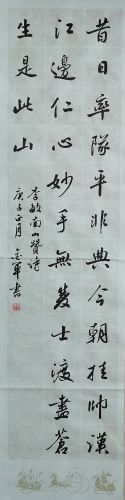 昔日率隊平非典今朝挂帥漢
江邊仁心妙手無荄士渡盡蒼
生是此山
李敏南山贊詩
庚子正月 金軍書